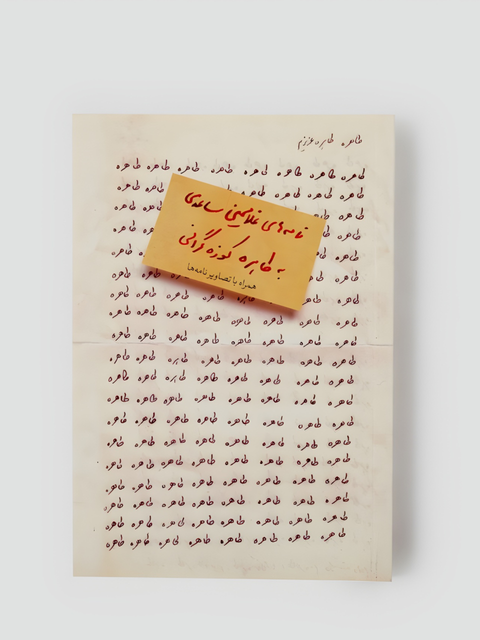 طاهره طاهره عزیزم
طاهره طاهره طاهره طاهره طاهره طاهره طاهره طاهره
طاهره طاهره طاهره طاهره طاهره طاهره
طاهره طاهره طاهره
طاهره طاهره
نامه‌های غلامحسین ساعدی
به طاهره کوزه‌گرانی
همراه با تصاویر نامه‌ها
طاهره طاهره
طاهره طاهره
طاهره طاهره طاهره طاهره طاهره طاهره
طاهره طاهره طاهره طاهره طاهره طاهره طاهره طاهره
طاهره طاهره طاهره طاهره طاهره طاهره طاهره طاهره
طاهره طاهره طاهره طاهره طاهره طاهره طاهره طاهره
طاهره طاهره طاهره طاهره طاهره طاهره طاهره طاهره
طاهره طاهره طاهره طاهره طاهره طاهره طاهره طاهره
طاهره طاهره طاهره طاهره طاهره طاهره طاهره طاهره
طاهره طاهره طاهره طاهره طاهره طاهره طاهره طاهره
طاهره طاهره طاهره طاهره طاهره طاهره طاهره طاهره
طاهره طاهره طاهره طاهره طاهره طاهره طاهره طاهره
طاهره طاهره طاهره طاهره طاهره طاهره طاهره طاهره
طاهره طاهره طاهره طاهره طاهره طاهره طاهره طاهره
طاهره طاهره طاهره طاهره طاهره طاهره طاهره طاهره